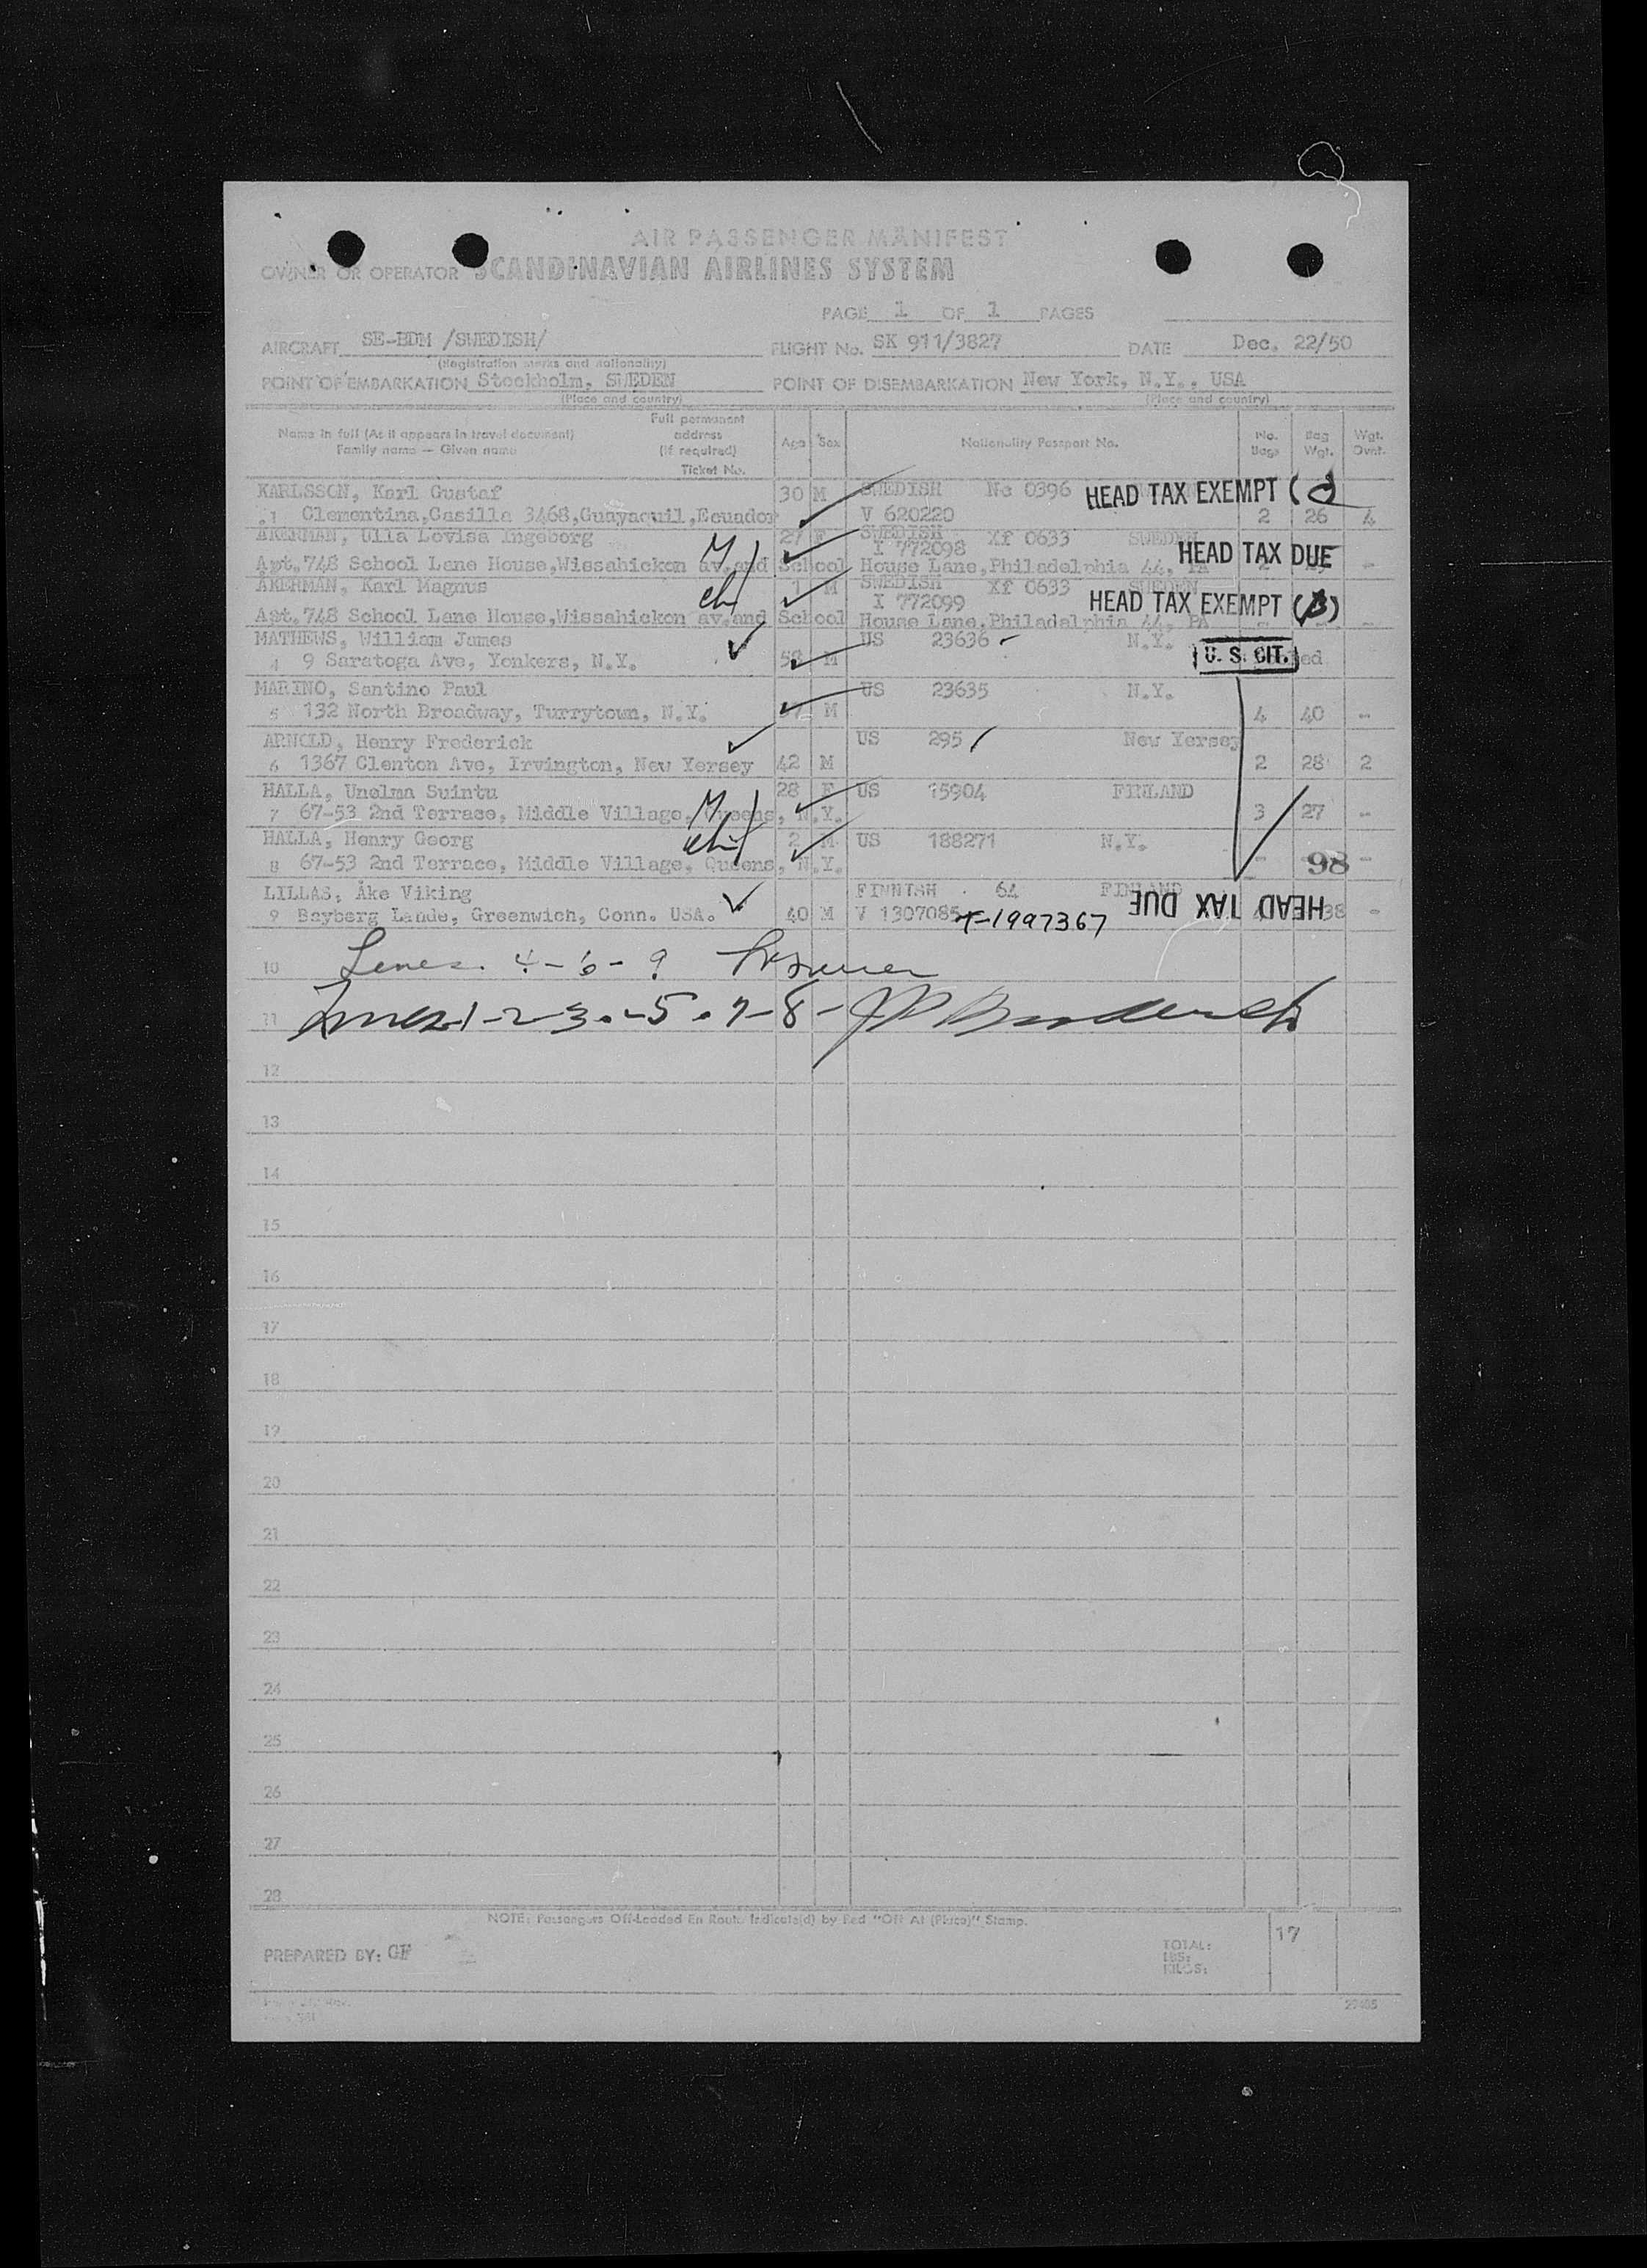 AIR PASSENGER MANIFEST
OWNER OR OPERATOR SCANDINAVIAN AIRLINES SYSTEM
PAGE 1 OF 1 PAGES
AIRCRAFT SE-BDM /SWEDISH/ FLIGHT No. SK 911/3827 DATE Dec. 22/50
(Registration marks and nationality)
POINT OF EMBARKATION Stockholm, SWEDEN POINT OF DISEMBARKATION New York, N.Y., USA
(Place and country) (Place and country)
Name in full (As it appears in travel document) Family name — Given name Full permanent address (if required) Ticket No. Age Sex Nationality Passport No. No. Bags Bag Wgt. Wgt. Ovet.
KARLSSON, Karl Gustaf 30 M SWEDISH No 0396 HEAD TAX EXEMPT (d
1 Clementina,Casilla 3468,Guayaquil,Ecuador V 620220 2 26 4
ÅKERMAN, Ulla Lovisa Ingeborg 27 F SWEDISH Xf 0633 SWEDEN
M I 772098 HEAD TAX DUE
Apt.748 School Lane House,Wissahickon av.and School House Lane,Philadelphia 44, PA -
ÅKERMAN, Karl Magnus 1 M SWEDISH Xf 0633 SWEDEN
chl I 772099 HEAD TAX EXEMPT (B)
Apt.748 School Lane House,Wissahickon av.and School House Lane,Philadelphia 44, PA - -
MATHEWS, William James US 23636 N.Y.
4 9 Saratoga Ave, Yonkers, N.Y. M U. S. CIT.
MARINO, Santino Paul US 23635 N.Y.
5 132 North Broadway, Turrytown, N.Y. M 4 40 -
ARNOLD, Henry Frederick US 295 New Yersey
6 1367 Clenton Ave, Irvington, New Yersey 42 M 2 28 2
HALLA, Unelma Suintu 28 F US 15904 FINLAND
7 67-53 2nd Terrase, Middle Village, Queens, N.Y. M 3 27 -
HALLA, Henry Georg chl 2 M US 188271 N.Y.
8 67-53 2nd Terrase, Middle Village, Queens, N.Y. - 98 -
LILLAS, Åke Viking FINNISH 64 FINLAND
9 Bayberg Lande, Greenwich, Conn. USA. 40 M V 1307085 T-1997367 HEAD TAX DUE 38 -
10 Lines 4-6-9
11 Lines 1-2-3-5-7-8-
12
13
14
15
16
17
18
19
20
21
22
23
24
25
26
27
28
NOTE: Passengers Off-Loaded En Route Indicate(d) by Red "Off At (Place)" Stamp.
PREPARED BY: GF
TOTAL: 17
LBS:
KILOS: